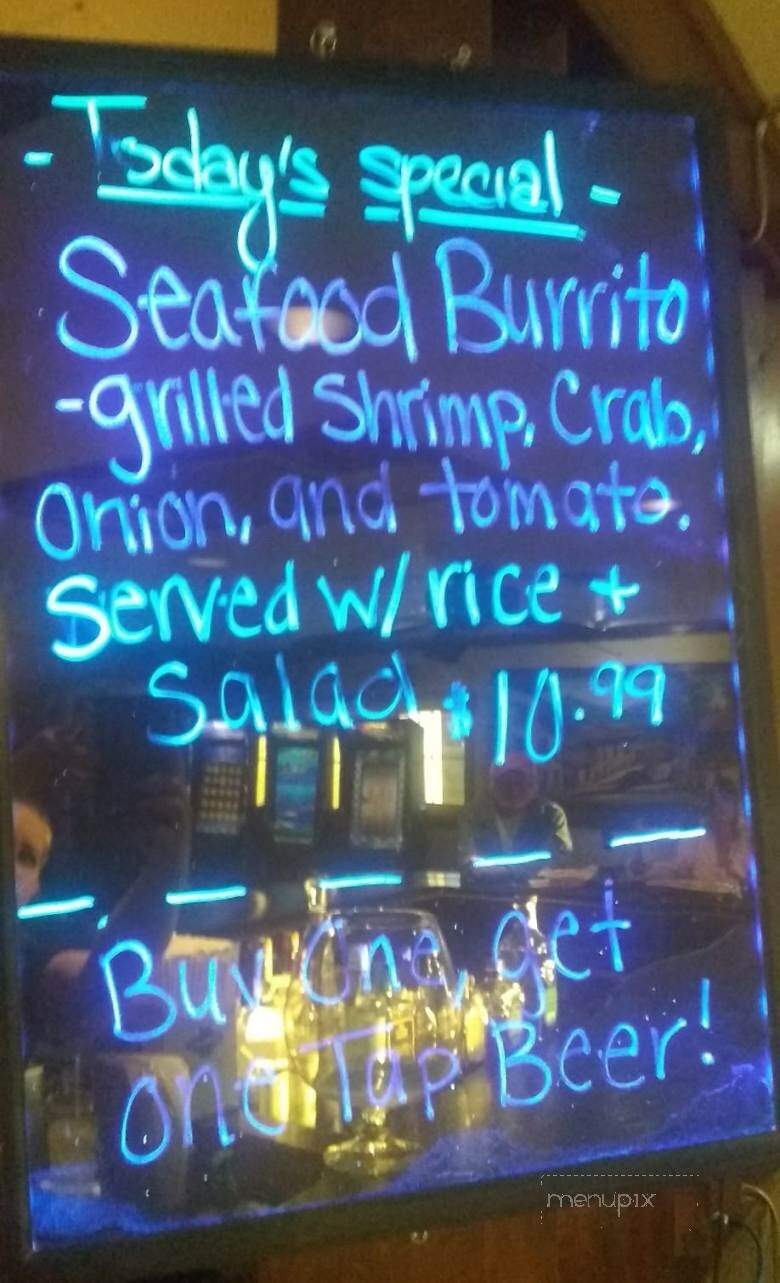 - Today's special -
Seafood Burrito
-grilled Shrimp, Crab,
Onion, and tomato.
Served w/ rice +
Salad $10.99
Buy One, get
one Tap Beer!
menupix